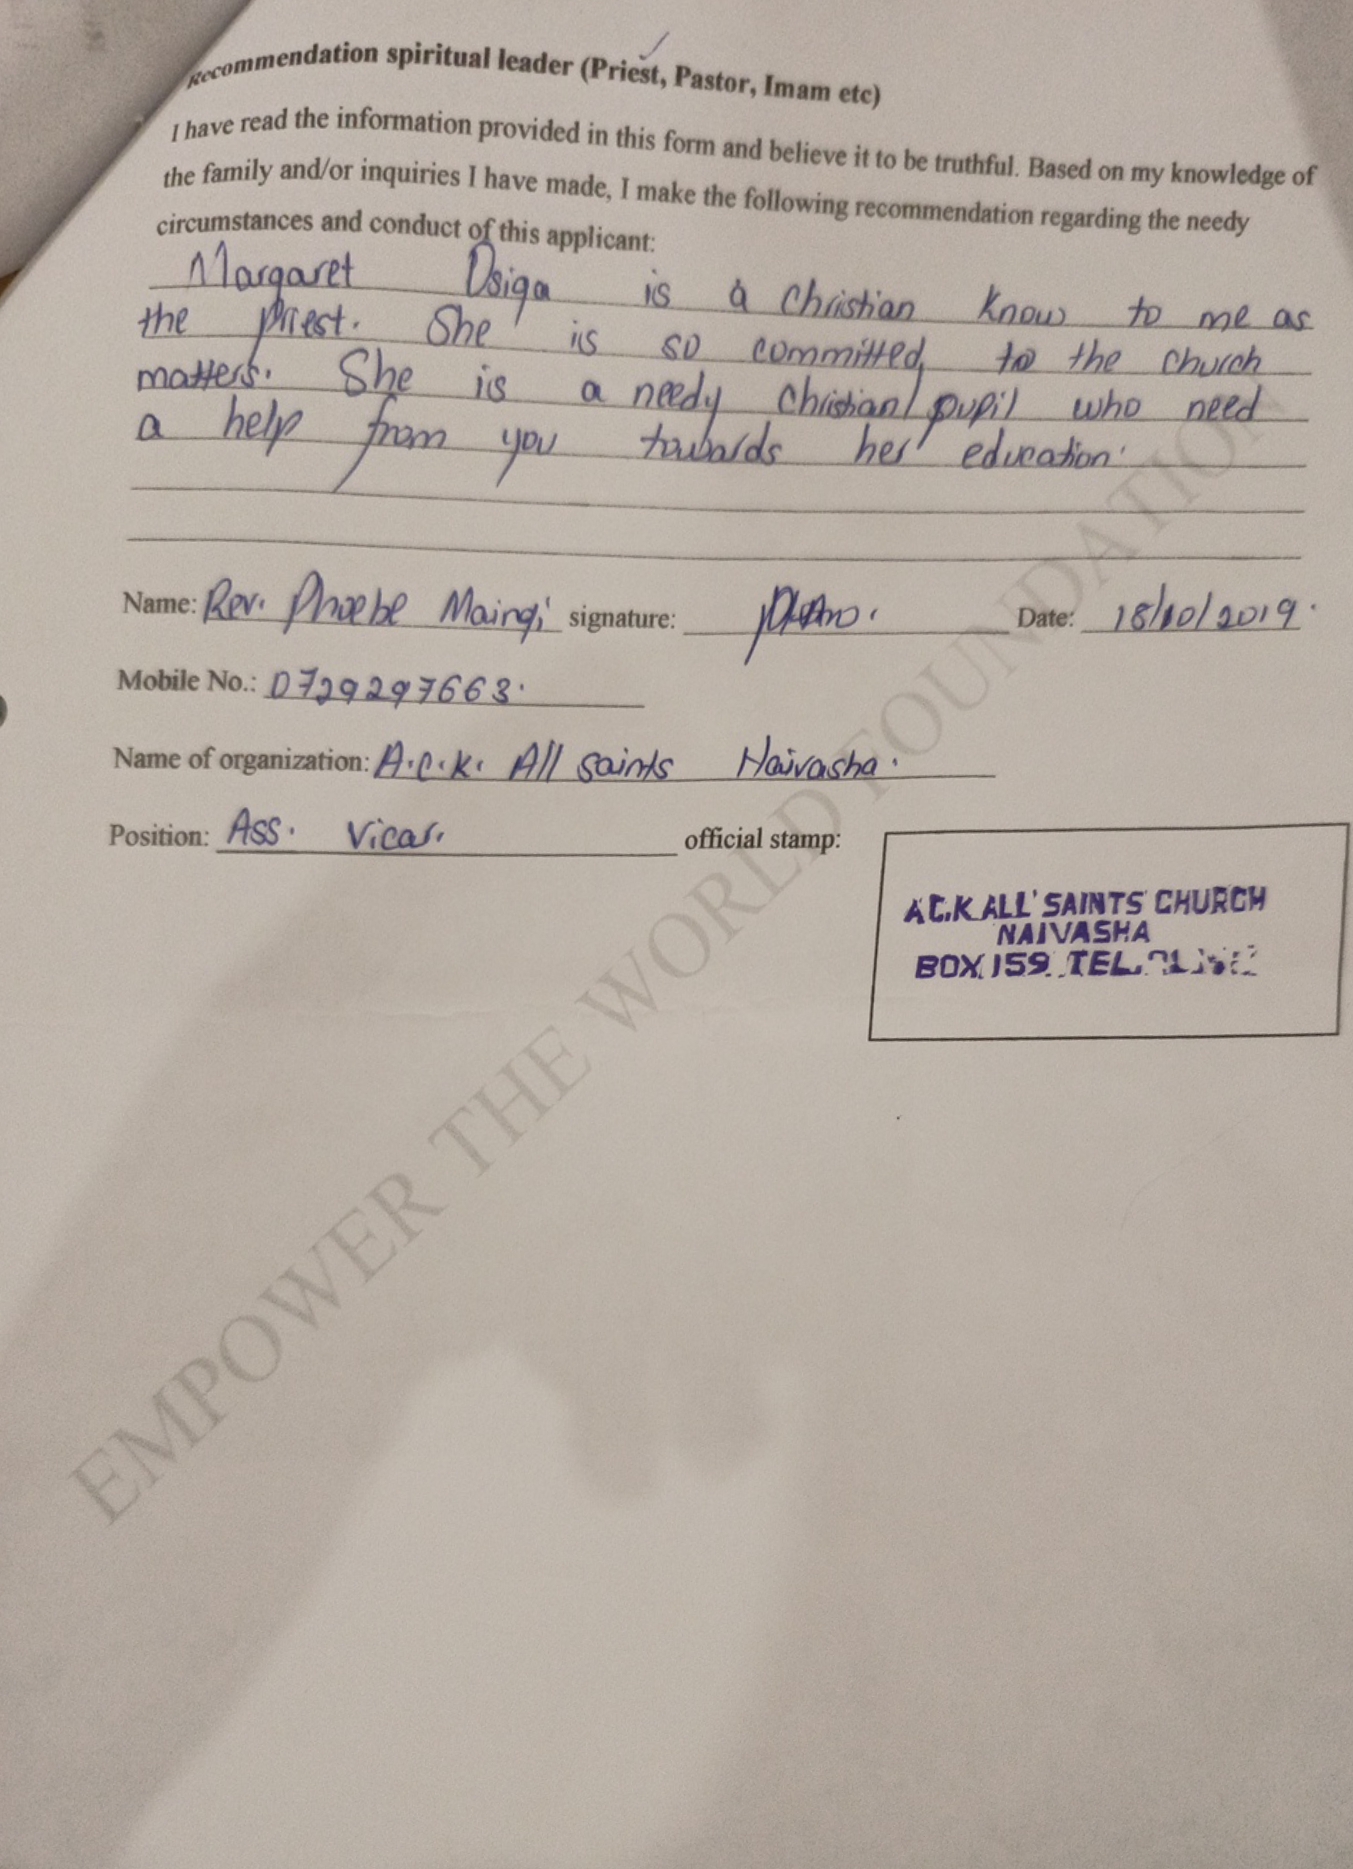 Recommendation spiritual leader (Priest, Pastor, Imam etc)
I have read the information provided in this form and believe it to be truthful. Based on my knowledge of
the family and/or inquiries I have made, I make the following recommendation regarding the needy
circumstances and conduct of this applicant:
Margaret Osiga is a Christian know to me as
the priest. She is so committed to the church
matters. She is a needy Christian/pupil who need
a help from you towards her education.
Name: Rev. Phoebe Maingi signature: Date: 18/10/2019.
Mobile No.: 0729297663.
Name of organization: A.C.K. All saints Naivasha.
Position: Ass. Vicar. official stamp:
A.C.K ALL' SAINTS CHURCH
NAIVASHA
BOX 159 TEL.
EMPOWER THE WORLD FOUNDATION